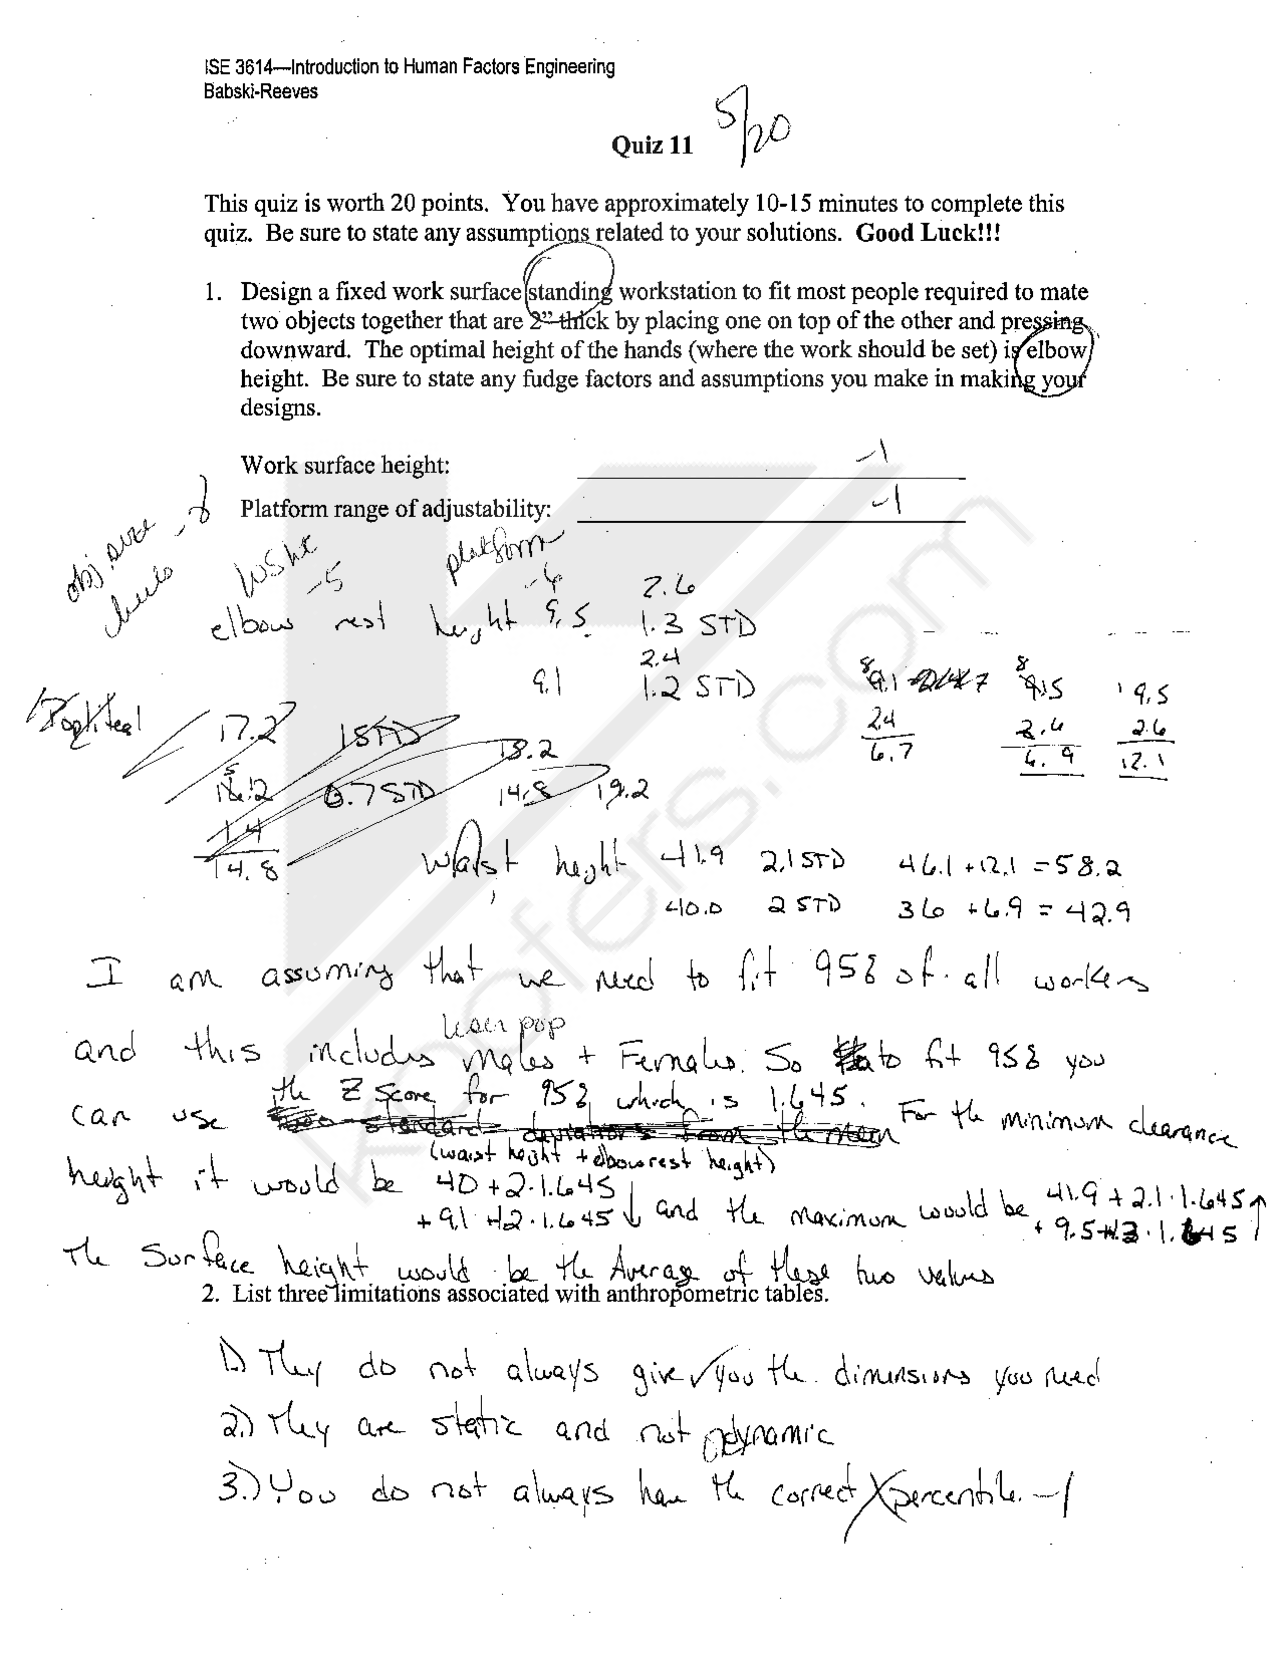 ISE 3614—Introduction to Human Factors Engineering
Babski-Reeves
5/20
Quiz 11
This quiz is worth 20 points. You have approximately 10-15 minutes to complete this
quiz. Be sure to state any assumptions related to your solutions. Good Luck!!!
1. Design a fixed work surface standing workstation to fit most people required to mate
two objects together that are 2" thick by placing one on top of the other and pressing
downward. The optimal height of the hands (where the work should be set) is elbow
height. Be sure to state any fudge factors and assumptions you make in making your
designs.
Work surface height: -1
Platform range of adjustability: -1
obj. size
WS ht
-5
platform
-6
elbow rest height 9.5 2.6
1.3 STD
9.1 2.4
1.2 STD
9.1
2.4
6.7
9.5
2.6
6.9
9.5
2.6
12.1
Popliteal 17.2 1 STD
18.2
16.2 0.7 STD 14.8 19.2
1.4
14.8
waist height 41.9 2.1 STD 46.1 + 12.1 = 58.2
40.0 2 STD 36 + 6.9 = 42.9
I am assuming that we need to fit 95% of all workers
user pop
and this includes males + Females. So to fit 95% you
can use the Z score for 95% which is 1.645. For the minimum clearance
(waist height + elbow rest height)
height it would be 40 + 2·1.645 and the maximum would be 41.9 + 2.1·1.645
+ 9.1 + 1.2·1.645 + 9.5 + 1.3·1.645
The Surface height would be the Average of these two values
2. List three limitations associated with anthropometric tables.
1.) They do not always give you the dimensions you need
2.) They are static and not dynamic
3.) You do not always have the correct percentile. -1
koofers.com